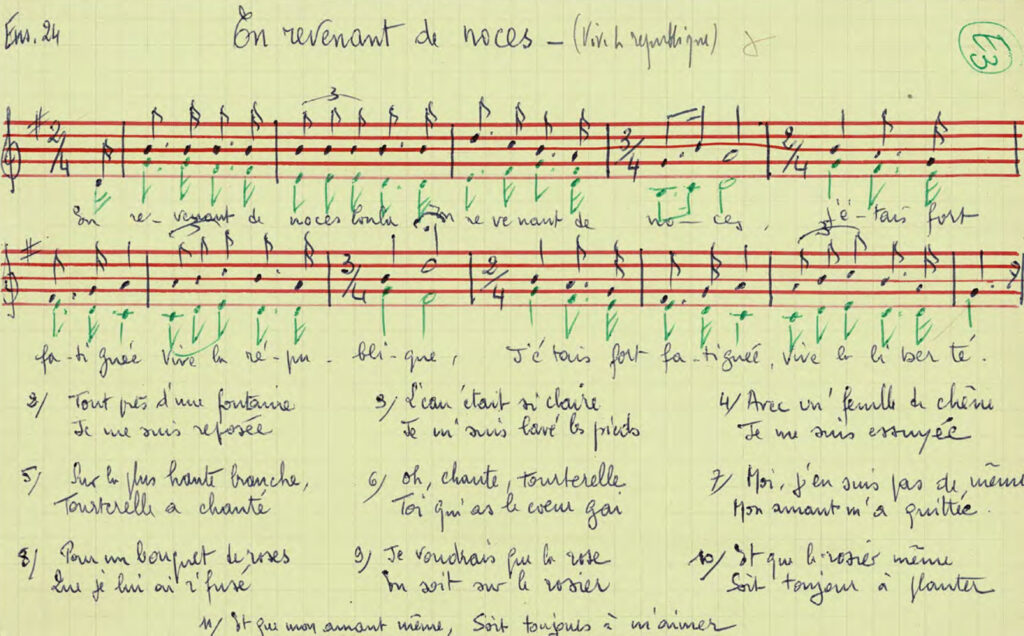 Enr. 24
En revenant de noces - (Vive la république)
E3
3
2/4
3/4
2/4
En re-venant de noces lonla En revenant de no-ces, j'é-tais fort
3
3
3/4
2/4
fa-ti-guée vive la ré-pu-bli-que, J'étais fort fa-tiguée, vive la li ber té.
2/ Tout près d'une fontaine
Je me suis reposée
3/ L'eau était si claire
Je m'suis lavé les pieds
4/ Avec un' feuille de chêne
Je me suis essuyée
5/ Sur la plus haute branche,
Tourterelle a chanté
6/ Oh, chante, tourterelle
Toi qui as le coeur gai
7/ Moi, j'en suis pas de même
Mon amant m'a quittée.
8/ Pour un bouquet de roses
Que je lui ai r'fusé
9/ Je voudrais que la rose
En soit sur le rosier
10/ Et que le rosier même
Soit toujour à planter
11/ Et que mon amant même, Soit toujours à m'aimer